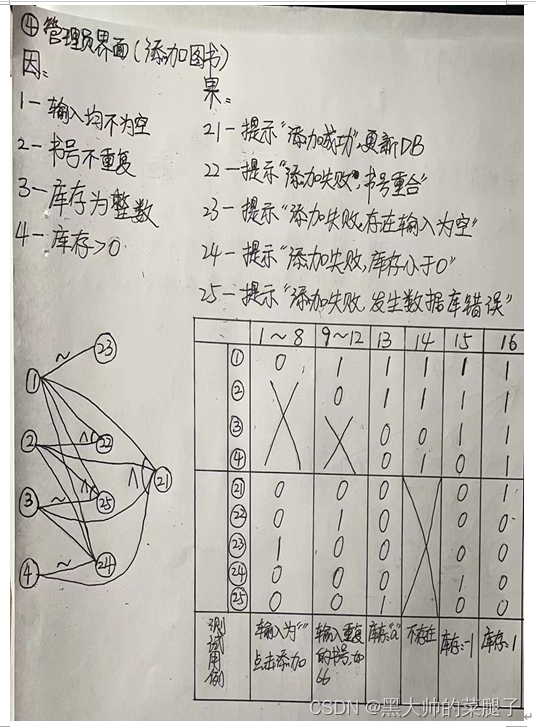 ④管理员界面(添加图书)
因:
1-输入均不为空
2-书号不重复
3-库存为整数
4-库存>0
果:
21-提示"添加成功",更新DB
22-提示"添加失败,书号重合"
23-提示"添加失败,存在输入为空"
24-提示"添加失败,库存小于0"
25-提示"添加失败 发生数据库错误"
① ~ ㉓
② ∧ ㉒
③ ~ ∧ ㉕ ∧ ㉑
④ ~ ㉔
1~8 9~12 13 14 15 16
① 0 1 1 1 1 1
② 0 1 1 1 1
③ 0 0 1 1
④ 0 1 0 1
㉑ 0 0 0 0 1
㉒ 0 1 0 0 0
㉓ 1 0 0 0 0
㉔ 0 0 0 1 0
㉕ 0 0 1 0 0
测试用例 输入为"" 点击添加 输入重复的书号,如66 库存:"a" 不存在 库存:-1 库存:1
CSDN @黑大帅的菜腿子